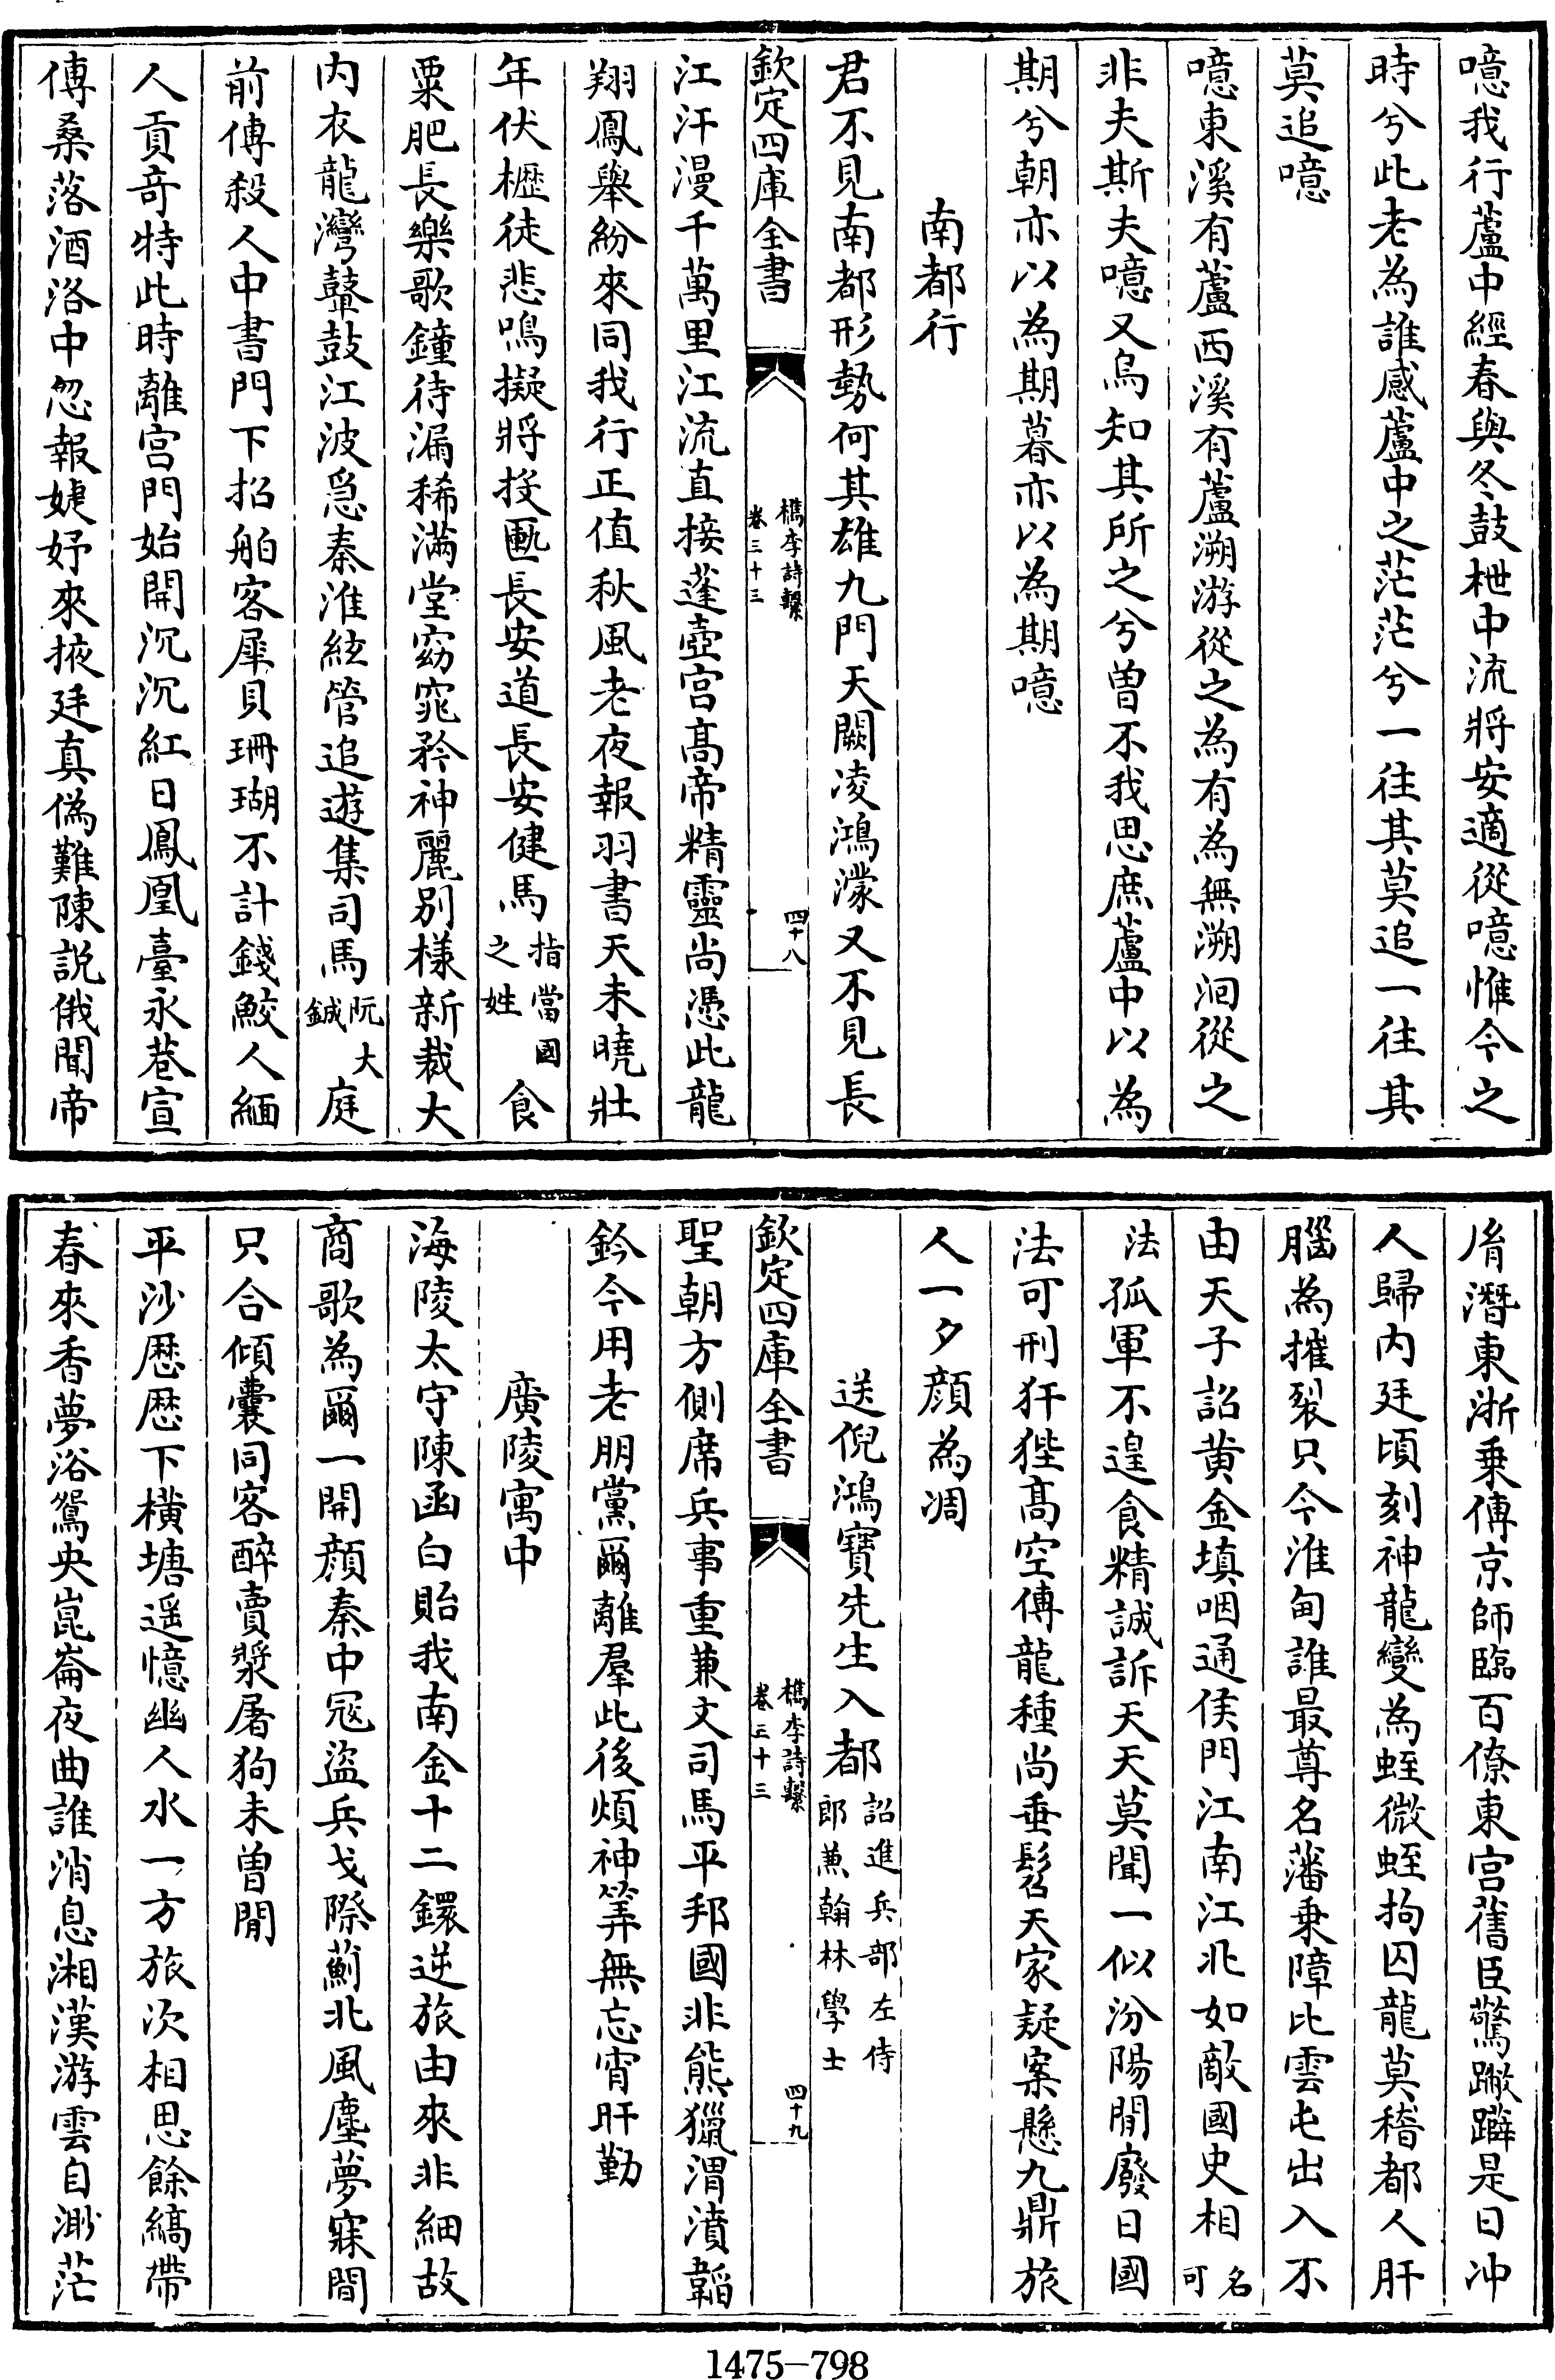 噫我行蘆中經春與冬鼓枻中流將安適從噫惟今之
時兮此老為誰感蘆中之茫茫兮一往其莫追一往其
莫追噫
噫東溪有蘆西溪有蘆溯游從之為有為無溯洄從之
非夫斯夫噫又烏知其所之兮曽不我思庶蘆中以為
期兮朝亦以為期暮亦以為期噫
南都行
君不見南都形勢何其雄九門天闕凌鴻濛又不見長
欽定四庫全書
檇李詩繫
卷三十三
四十八
江汗漫千萬里江流直接蓬壺宫髙帝精靈尚憑此龍
翔鳳舉紛來同我行正值秋風老夜報羽書天未曉壯
年伏櫪徒悲鳴擬將投匭長安道長安健馬指當國之姓食
粟肥長樂歌鐘待漏稀滿堂窈窕矜神麗别様新裁大
内衣龍灣鼙鼓江波急秦淮絃管追遊集司馬阮大鋮庭
前傅殺人中書門下招舶客犀貝珊瑚不計錢鮫人緬
人貢奇特此時離宫門始開沉沉紅日鳳凰臺永巷宣
傅桑落酒洛中忽報婕妤來掖廷真偽難陳說俄聞帝
胤潛東浙乗傅京師臨百僚東宫舊臣驚躃躃是日冲
人歸内廷頃刻神龍變為蛭微蛭拘囚龍莫稽都人肝
腦為摧裂只今淮甸誰最尊名藩乗障比雲屯出入不
由天子詔黄金填咽通侯門江南江北如敵國史相名可
法孤軍不遑食精誠訴天天莫聞一似汾陽閒廢日國
法可刑犴狴髙空傅龍種尚垂髫天家疑案懸九鼎旅
人一夕顔為凋
送倪鴻寶先生入都詔進兵部左侍郎兼翰林學士
欽定四庫全書
檇李詩繫
卷三十三
四十九
聖朝方側席兵事重兼文司馬平邦國非熊獵渭濆韜
鈐今用老朋黨爾離羣此後煩神筭無忘宵旰勤
廣陵寓中
海陵太守陳函白貽我南金十二鐶逆旅由來非細故
商歌為爾一開顔秦中冦盜兵戈際薊北風塵夢寐間
只合傾囊同客醉賣漿屠狗未曽閒
平沙厯厯下横塘遥憶幽人水一方旅次相思餘縞帶
春來香夢浴鴛央崑崙夜曲誰消息湘漢游雲自渺茫
1475-798